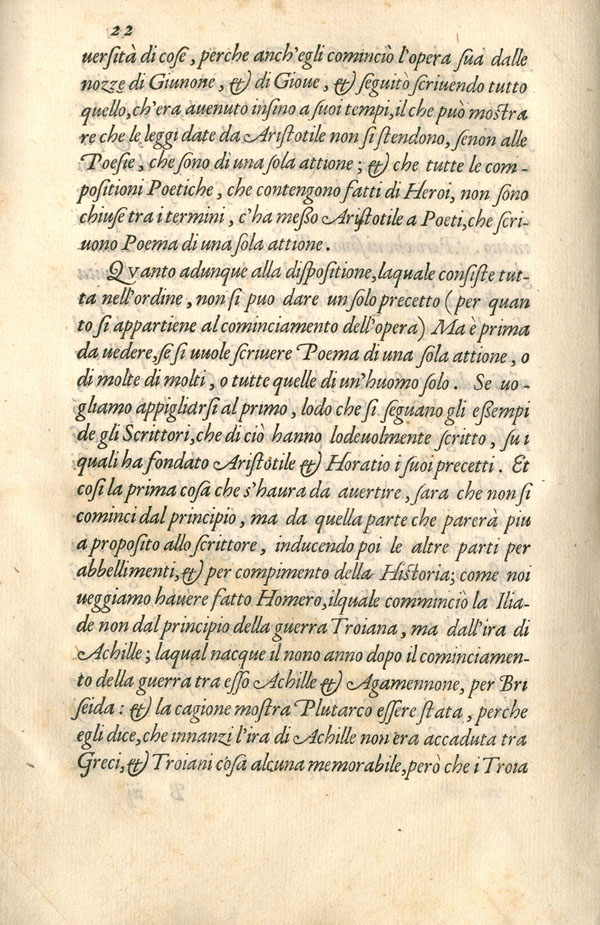 22
uersità di cose, perche anch'egli cominciò l'opera sua dalle
nozze di Giunone, & di Gioue, & seguitò scriuendo tutto
quello, ch'era auenuto insino a suoi tempi, il che può mostra
re che le leggi date da Aristotile non si stendono, senon alle
Poesie, che sono di una sola attione; & che tutte le com-
positioni Poetiche, che contengono fatti di Heroi, non sono
chiuse tra i termini, c'ha messo Aristotile a Poeti, che scri-
uono Poema di una sola attione.
Quanto adunque alla dispositione, laquale consiste tut-
ta nell'ordine, non si puo dare un solo precetto (per quan
to si appartiene al cominciamento dell'opera) Ma è prima
da uedere, se si uuole scriuere Poema di una sola attione, o
di molte di molti, o tutte quelle di un'huomo solo. Se uo-
gliamo appigliarsi al primo, lodo che si seguano gli essempi
de gli Scrittori, che di ciò hanno lodeuolmente scritto, su i
quali ha fondato Aristotile & Horatio i suoi precetti. Et
cosi la prima cosa che s'haura da auertire, sara che non si
cominci dal principio, ma da quella parte che parerà piu
a proposito allo scrittore, inducendo poi le altre parti per
abbellimenti, & per compimento della Historia; come noi
ueggiamo hauere fatto Homero, ilquale comminciò la Ilia-
de non dal principio della guerra Troiana, ma dall'ira di
Achille; laqual nacque il nono anno dopo il cominciamen-
to della guerra tra esso Achille & Agamennone, per Bri
seida: & la cagione mostra Plutarco essere stata, perche
egli dice, che innanzi l'ira di Achille non era accaduta tra
Greci, & Troiani cosa alcuna memorabile, però che i Troia